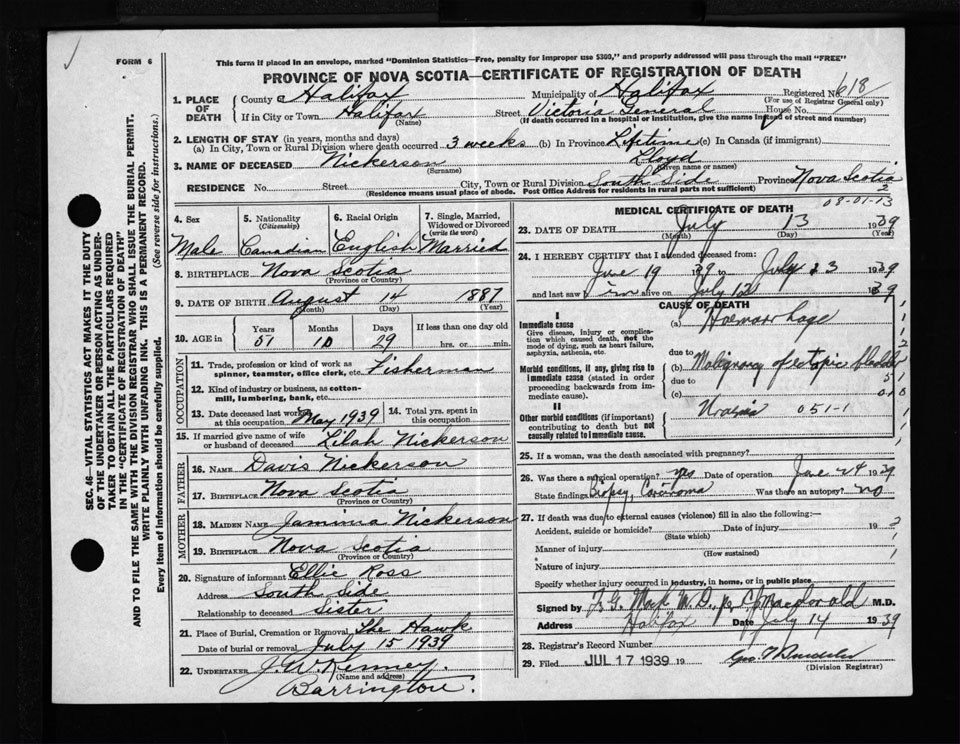 FORM 6
This form if placed in an envelope, marked "Dominion Statistics—Free, penalty for improper use $300," and properly addressed will pass through the mail "FREE"
PROVINCE OF NOVA SCOTIA—CERTIFICATE OF REGISTRATION OF DEATH
1. PLACE OF DEATH County of Halifax Municipality of Halifax Registered No. 618
(For use of Registrar General only)
If in City or Town Halifax Street Victoria General House No.
(Name) (If death occurred in a hospital or institution, give the name instead of street and number)
2. LENGTH OF STAY (in years, months and days)
(a) In City, Town or Rural Division where death occurred 3 weeks (b) In Province Lifetime (c) In Canada (if immigrant)
3. NAME OF DECEASED Nickerson Lloyd
(Surname) (Given name or names)
RESIDENCE No. Street City, Town or Rural Division South Side Province Nova Scotia
(Residence means usual place of abode. Post Office Address for residents in rural parts not sufficient)
2
08-01-13
4. Sex Male
5. Nationality (Citizenship) Canadian
6. Racial Origin English
7. Single, Married, Widowed or Divorced (write the word) Married
8. BIRTHPLACE Nova Scotia
(Province or Country)
9. DATE OF BIRTH August 14 1887
(Month) (Day) (Year)
10. AGE in Years Months Days If less than one day old
51 10 29 hrs. or min.
OCCUPATION
11. Trade, profession or kind of work as spinner, teamster, office clerk, etc. Fisherman
12. Kind of industry or business, as cotton-mill, lumbering, bank, etc.
13. Date deceased last worked at this occupation May 1939 14. Total yrs. spent in this occupation
15. If married give name of wife or husband of deceased Lilah Nickerson
FATHER
16. NAME Davis Nickerson
17. BIRTHPLACE Nova Scotia
(Province or Country)
MOTHER
18. MAIDEN NAME Jamima Nickerson
19. BIRTHPLACE Nova Scotia
(Province or Country)
20. Signature of informant Ellie Ross
Address South Side
Relationship to deceased Sister
21. Place of Burial, Cremation or Removal The Hawk
Date of burial or removal July 15 1939
22. UNDERTAKER J. W. Kenney
(Name and address)
Barrington.
MEDICAL CERTIFICATE OF DEATH
23. DATE OF DEATH July 13 1939
(Month) (Day) (Year)
24. I HEREBY CERTIFY that I attended deceased from:
June 19 1939 to July 13 1939
and last saw him alive on July 12 1939
CAUSE OF DEATH
I
Immediate cause
Give disease, injury or complication which caused death, not the mode of dying, such as heart failure, asphyxia, asthenia, etc.
(a) Haemorrhage
due to
Morbid conditions, if any, giving rise to immediate cause (stated in order proceeding backwards from immediate cause).
(b) Malignancy of ectopic bladder
due to
(c)
II
Other morbid conditions (if important) contributing to death but not causally related to immediate cause.
051-1
25. If a woman, was the death associated with pregnancy?
26. Was there a surgical operation? yes Date of operation June 24 1939
State findings Biopsy, Carcinoma Was there an autopsy? no
27. If death was due to external causes (violence) fill in also the following:—
Accident, suicide or homicide? Date of injury 19
(State which)
Manner of injury
(How sustained)
Nature of injury
Specify whether injury occurred in industry, in home, or in public place
Signed by M.D. M.D.
Address Halifax Date July 14 1939
28. Registrar's Record Number
29. Filed JUL 17 1939 19
(Division Registrar)
SEC. 46—VITAL STATISTICS ACT MAKES IT THE DUTY OF THE UNDERTAKER OR PERSON ACTING AS UNDERTAKER TO OBTAIN ALL THE PARTICULARS REQUIRED IN THE "CERTIFICATE OF REGISTRATION OF DEATH" AND TO FILE THE SAME WITH THE DIVISION REGISTRAR WHO SHALL ISSUE THE BURIAL PERMIT.
WRITE PLAINLY WITH UNFADING INK. THIS IS A PERMANENT RECORD.
Every item of information should be carefully supplied. (See reverse side for instructions.)